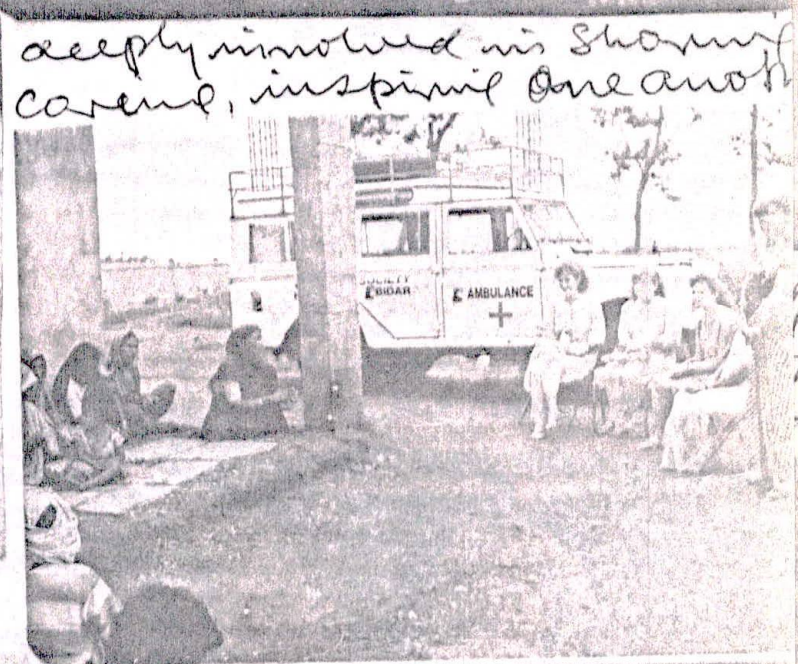 deeply involved in Sharing
Careing, inspiring One anoth
SOCIETY
BIDAR
AMBULANCE